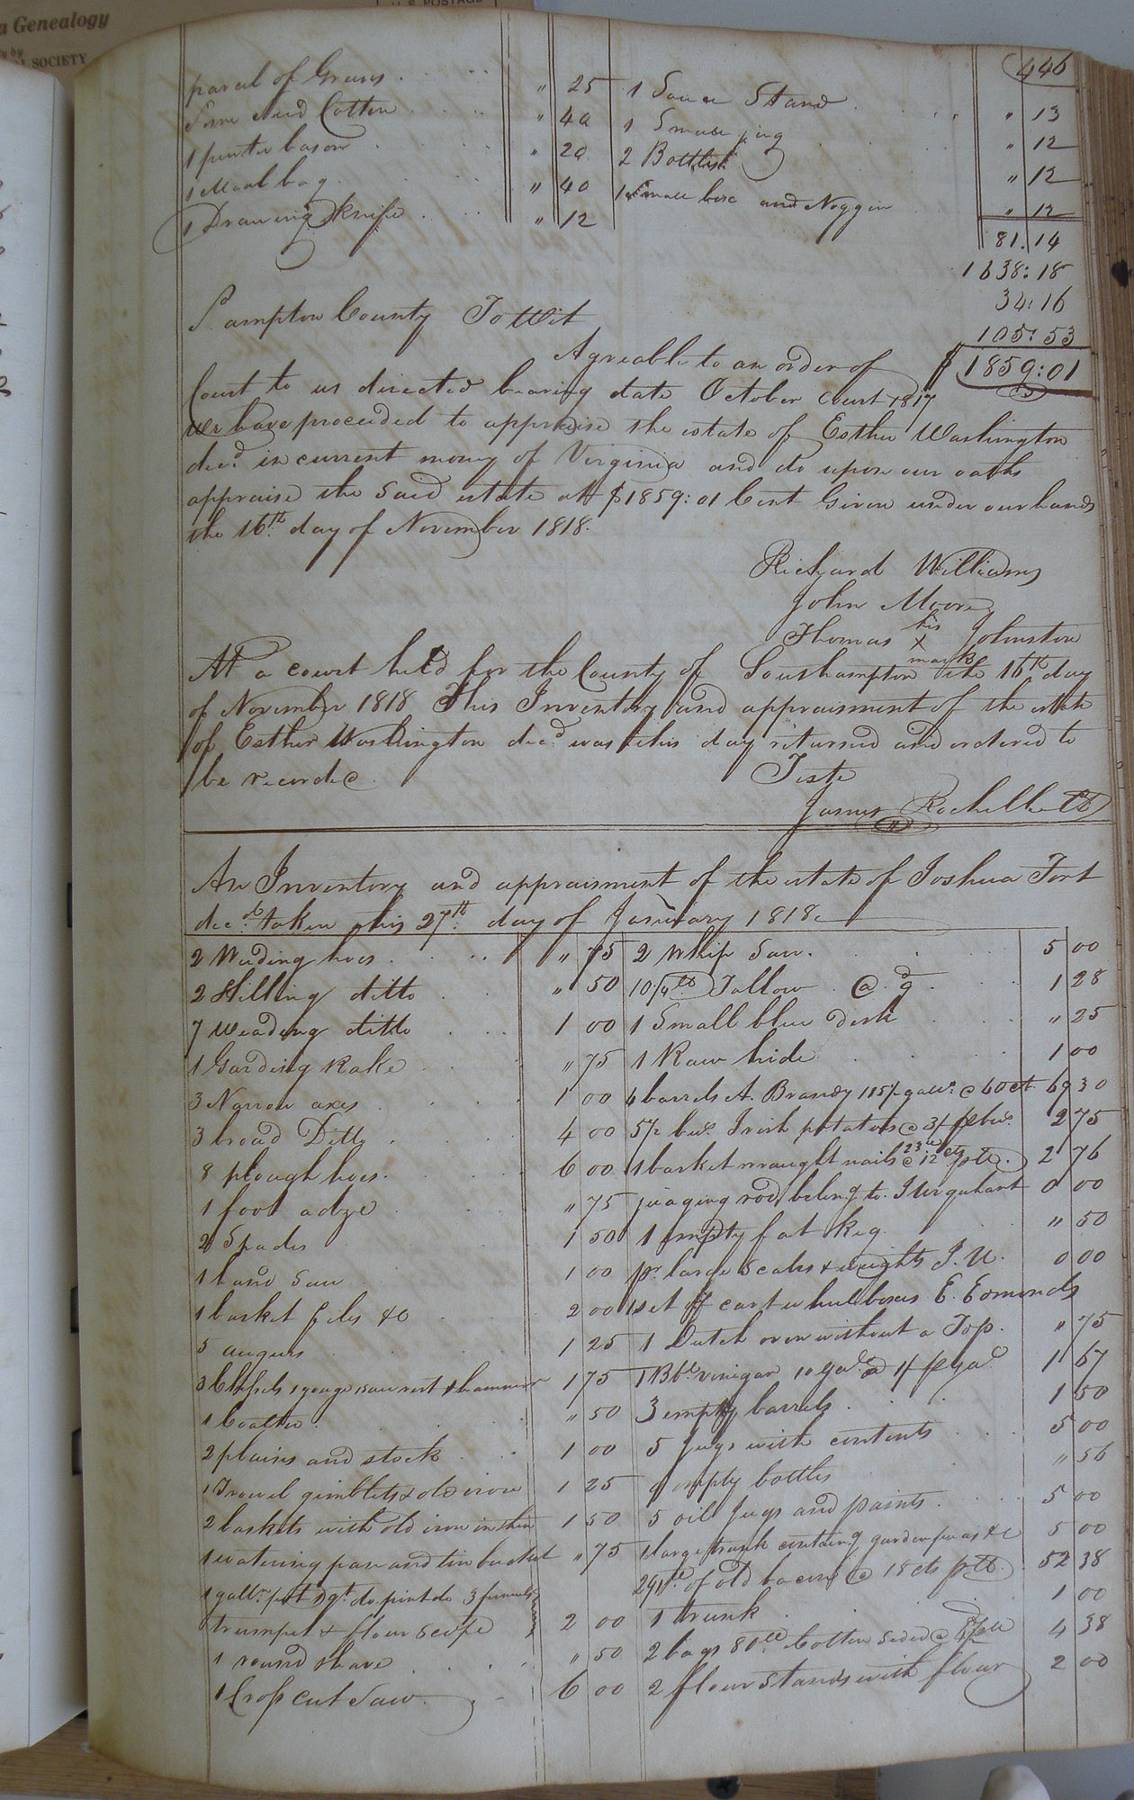 a Genealogy
SOCIETY
U.S. POSTAGE
446
parcel of " 25 1 Stand " 13
Some Seed Cotton " 40 1 Small jug " 12
1 pewter bason " 20 2 Bottles " 12
1 Meal bag " 40 1 Small box and Noggin " 12
1 Drawing Knife " 12
81.14
1638:18
34:16
105:53
$1859:01
S.ampton County To Wit
Agreable to an order of
Court to us directed bearing date October Court 1817
We have proceeded to appraise the estate of Esther Washington
decd. in current money of Virginia and do upon our oaths
appraise the Said estate at $1859:01 Cent Given under our hands
the 16th. day of November 1818.
Richard Williams
John Moore
Thomas his x mark Johnston
At a court held for the County of Southampton the 16th day
of November 1818 This Inventory and appraisment of the estate
of Esther Washington decd. was this day returned and ordered to
be recorded
Teste
James Rochelle
An Inventory and appraisment of the estate of Joshua Fort
decd. taken this 27th. day of January 1818
2 Weeding hoes " 75 2 Whip Saw. 5 00
2 Hilling ditto " 50 10/4 lb Tallow @ 9d 1 28
7 Weading ditto 1 00 1 Small blue desk " 25
1 Garding Rake " 75 1 Raw hide 1 00
3 Narrow axes 1 00 4 barrels A. Brandy 115½ galls. @ 60 ct 69 30
3 broad Ditto 4 00 5½ bus. Irish potatoes @ 3/ pr bus. 2 75
8 plough hoes. 6 00 1 basket wraught nails 23 lb @ 12 cts p lb. 2 76
1 foot adze " 75 juaging rod belong to J Urquhart 0 00
2 Spades 1 50 1 empty fat keg " 50
1 hand Saw 1 00 pr large Scales & weights J. U. 0 00
1 basket files &c 2 00 1 set of cart wheel boxes E. Edmunds
5 augurs 1 25 1 Dutch oven without a Top. " 75
3 Chissels 1 gouge 1 saw rest & hammer 1 75 1 Bbl. vinigar 10 gal. @ 1/ pr gal 1 67
1 " 50 3 empty barrels 1 50
2 plains and stock 1 00 5 Jugs with contents 5 00
1 Trowel gimblets & old iron 1 25 9 empty bottles " 56
2 baskets with old iron in them 1 50 5 oil Jugs and paints 5 00
1 watering pan and tin bucket " 75 1 large trunk containg garden peas &c 5 00
291 lb. of old bacon @ 18 cts p lb. 52 38
1 gallon pot 1 qt. do. pint do 3 funnels
trumpet & flour 2 00 1 trunk 1 00
1 round shave " 50 2 bags 80 lb. Cotton 4 38
1 Cross cut Saw. 6 00 2 flour stands with flour 2 00